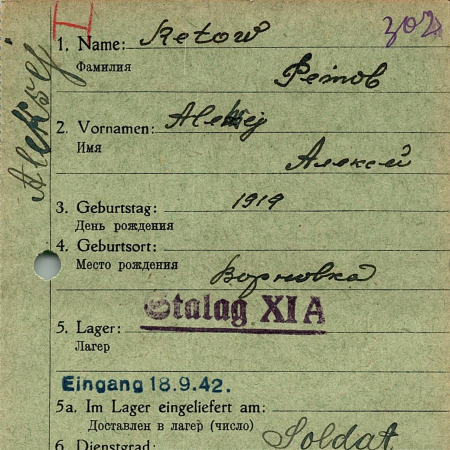 I
302
Aleksej
1. Name: Retow
Фамилия
Ретов
2. Vornamen: Aleksej
Имя
Алексей
3. Geburtstag: 1919
День рождения
4. Geburtsort:
Место рождения
Ворновка
Stalag XI A
5. Lager:
Лагерь
Eingang 18.9.42.
5a. Im Lager eingeliefert am:
Доставлен в лагерь (число)
Soldat
6. Dienstgrad: